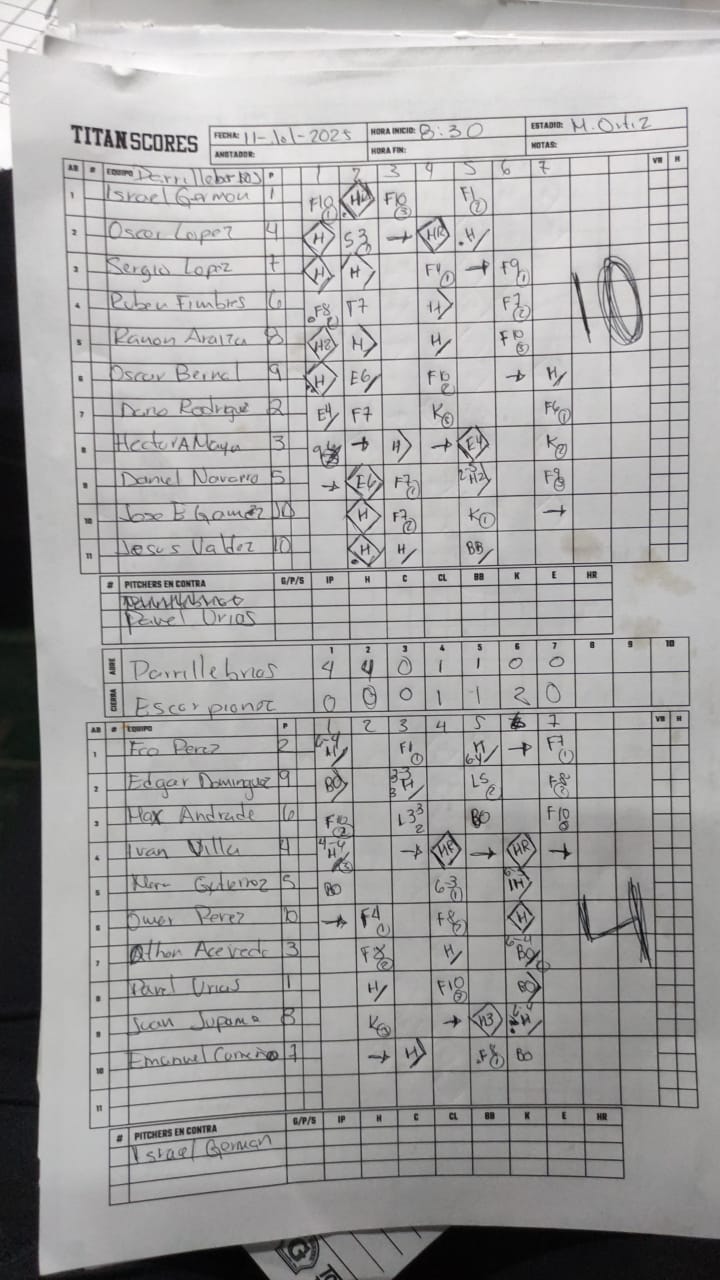 TITANSCORES
FECHA: 11-Jul-2025 HORA INICIO: 8:30 ESTADIO: M. Ortiz
ANOTADOR: HORA FIN: NOTAS:
AB # EQUIPO P 1 2 3 4 5 6 7 VB H
1 Israel German 1 F10 1 F10 3 F1 2
2 Oscar Lopez 4 H 53 → HR .H
3 Sergio Lopez 7 H H F4 1 → F9 1
4 Ruben Fimbres 6 .F8 F7 H F7 2
5 Ramon Araiza 8 H2 H H F10 3
6 Oscar Bernal 9 H E6 F10 2 → H
7 Dario 2 E4 F7 K 3 F6 1
8 Hector A Maya 3 → H → E4 K 2
9 Daniel Navarro 5 → E6 F7 1 H2 F9 3
10 Jose E Gamez 10 H F7 2 K 1 →
11 Jesus Valdez 10 .H H BB
# PITCHERS EN CONTRA G/P/S IP H C CL BB K E HR
Pavel Urias
1 2 3 4 5 6 7 8 9 10
ABRE Parrillebrios 4 4 0 1 1 0 0
CIERRA 0 0 0 1 1 2 0
AB # EQUIPO P 1 2 3 4 5 6 7 VB H
1 Fco Perez 2 6-4 H F1 1 H 6-4 → F7 1
2 Edgar Dominguez 9 BO H L5 2 F8 2
3 Max Andrade 6 F10 2 L3 BO F10 3
4 Ivan Villa 4 4-4 H → HR → HR →
5 5 BO 6-3 1 H
6 Omar Perez 10 → F4 1 F8 2 H
7 Othon Acevedo 3 F8 2 H 6-4 BO
8 Pavel Urias 1 H F10 3 BO
9 Juan 8 K 3 → H3 H
10 Emanuel 7 → H .F8 1 BO
11
# PITCHERS EN CONTRA G/P/S IP H C CL BB K E HR
Israel German
10
4